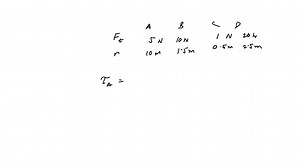 A B C D
F_t 5N 10N 1 N 20N
r 10m 1.5m 0.5m 2.5m
τ_A =